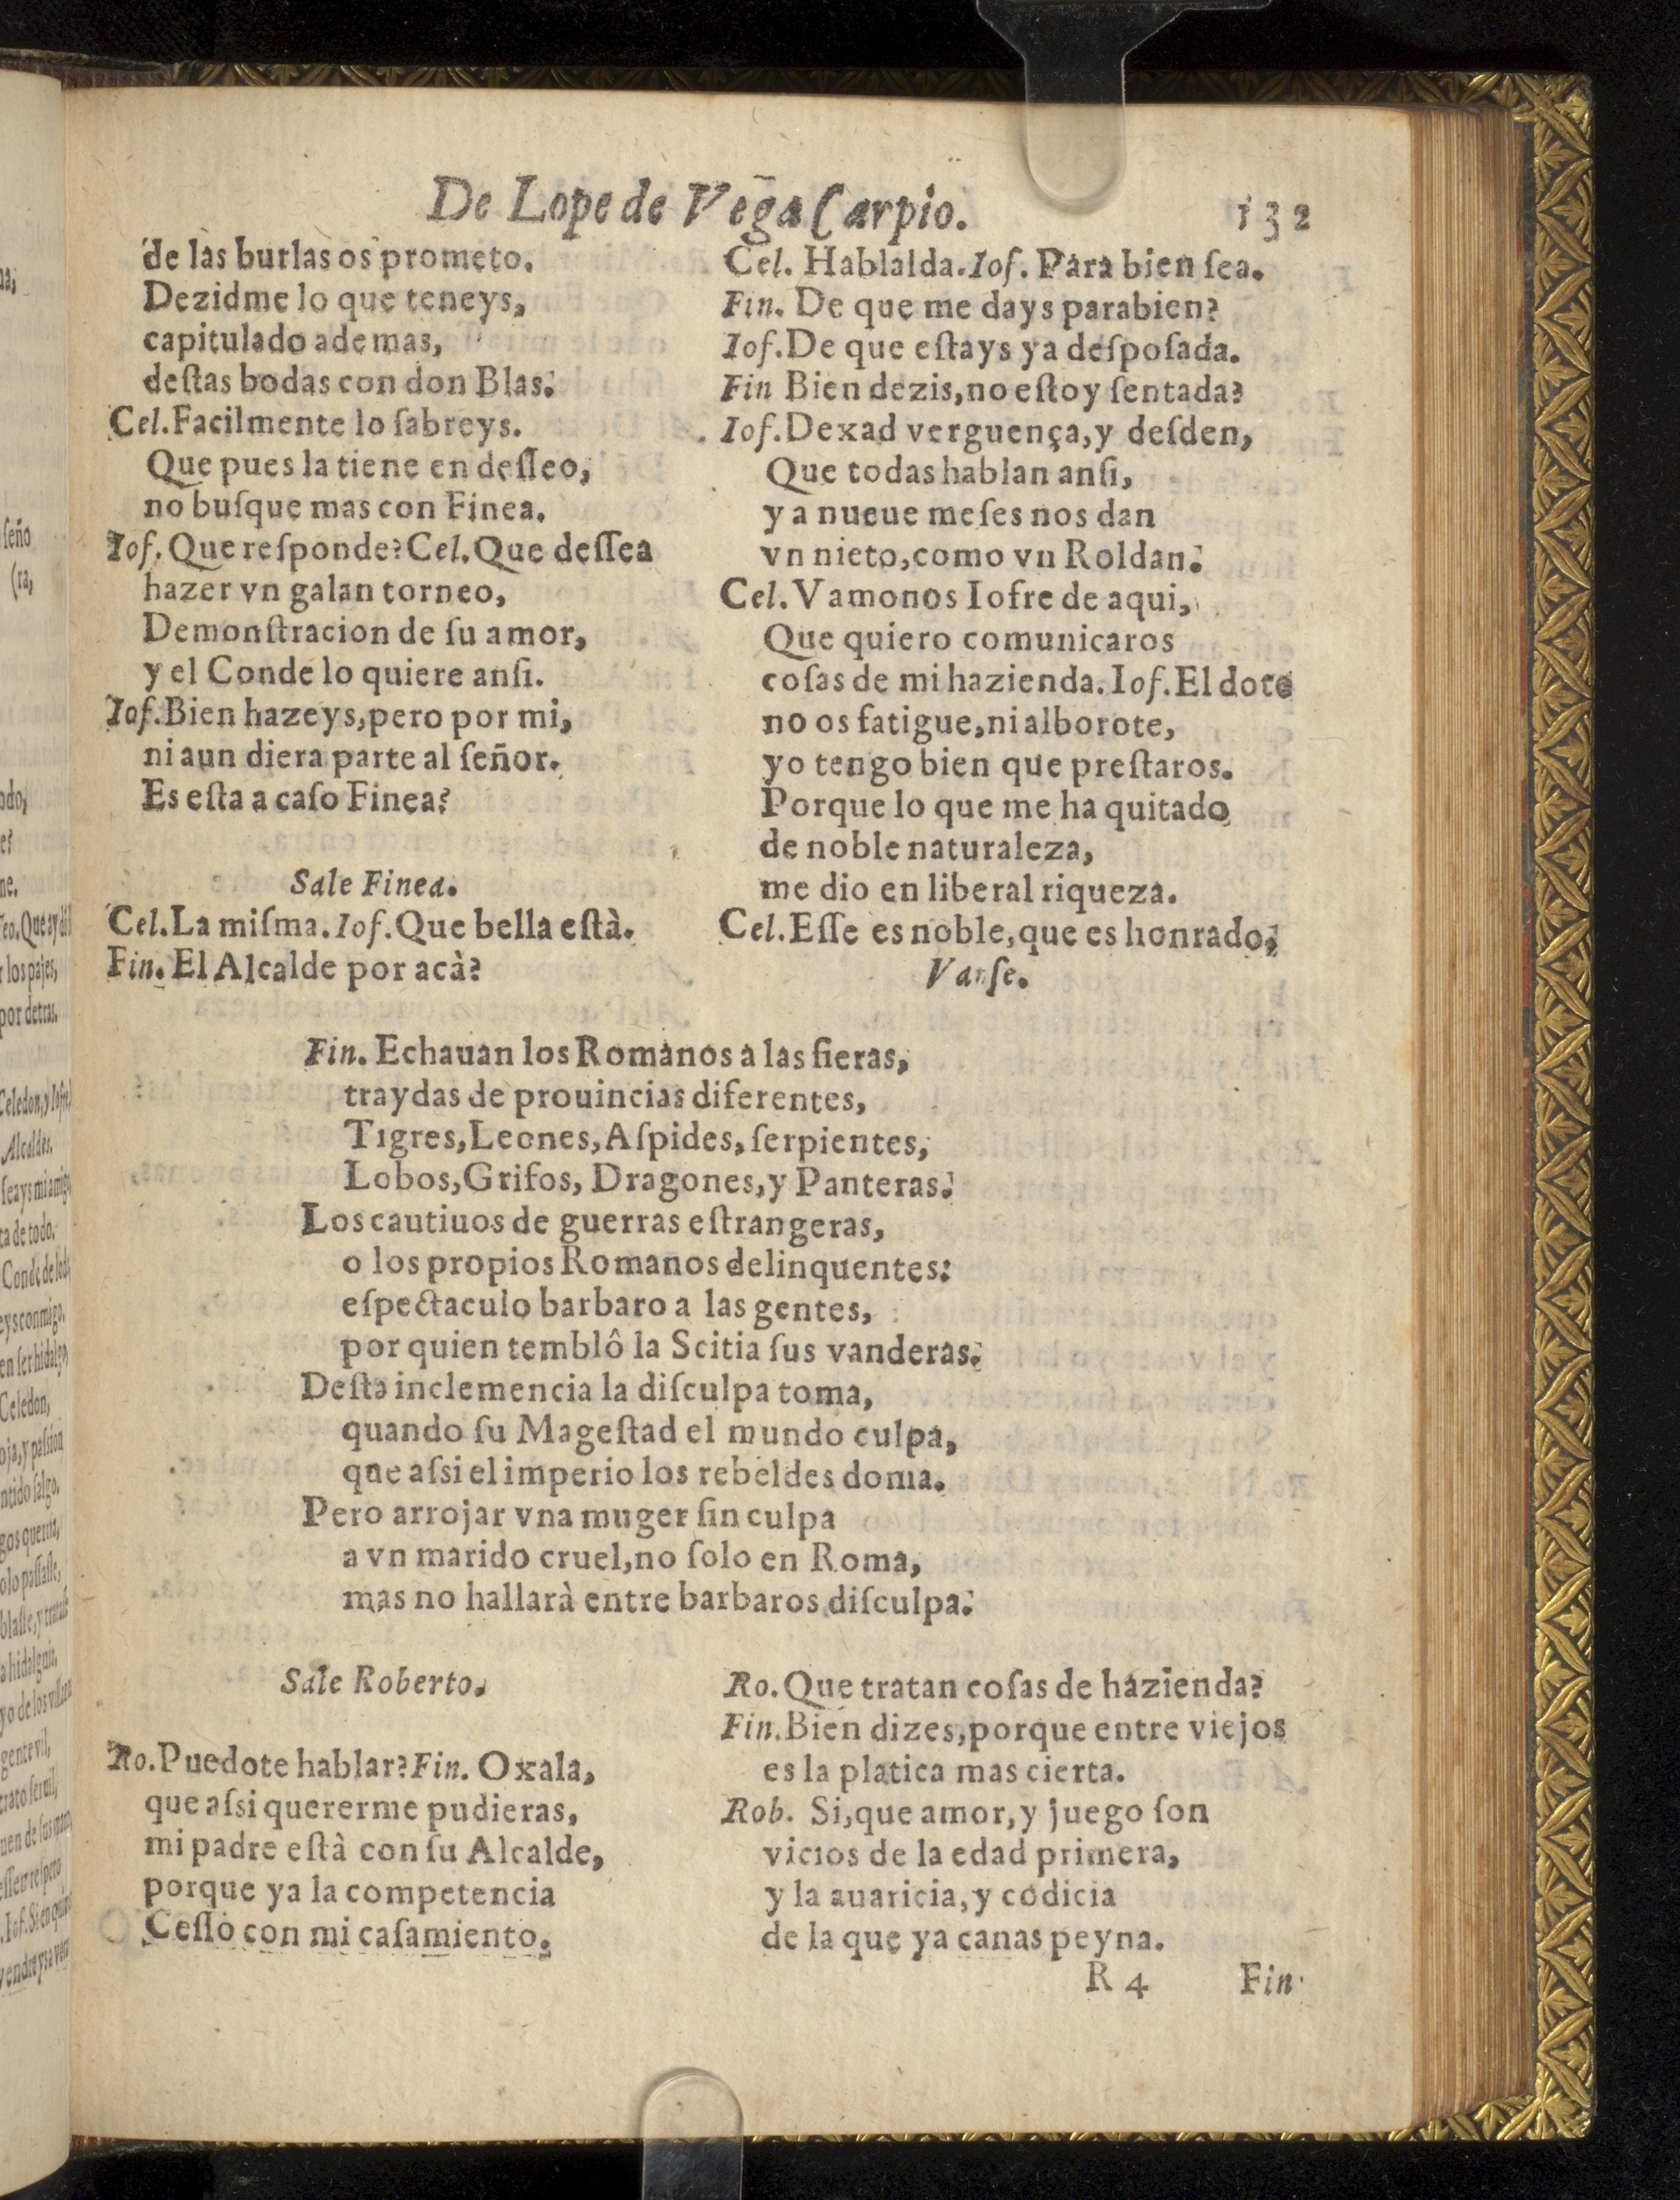 De Lope de Vega Carpio. 132
de las burlas os prometo.
Dezidme lo que teneys,
capitulado ademas,
deſtas bodas con don Blas.
Cel.Facilmente lo ſabreys.
Que pues la tiene en deſſeo,
no buſque mas con Finea.
Ioſ.Que reſponde?Cel.Que deſſea
hazer vn galan torneo,
Demonſtracion de ſu amor,
y el Conde lo quiere anſi.
Ioſ.Bien hazeys,pero por mi,
ni aun diera parte al ſeñor.
Es eſta a caſo Finea?
Sale Finea.
Cel.La miſma.Ioſ.Que bella eſtà.
Fin. El Alcalde por acà?
Cel. Hablalda.Ioſ. Para bien ſea.
Fin. De que me days parabien?
Ioſ.De que eſtays ya deſpoſada.
Fin Bien dezis,no eſtoy ſentada?
Ioſ.Dexad verguença,y deſden,
Que todas hablan anſi,
y a nueue meſes nos dan
vn nieto,como vn Roldan.
Cel.Vamonos Iofre de aqui,
Que quiero comunicaros
coſas de mi hazienda.Ioſ.El dote
no os fatigue,ni alborote,
yo tengo bien que preſtaros.
Porque lo que me ha quitado
de noble naturaleza,
me dio en liberal riqueza.
Cel.Eſſe es noble,que es honrado,
Vanſe.
Fin. Echauan los Romanos a las fieras,
traydas de prouincias diferentes,
Tigres,Leones,Aſpides,ſerpientes,
Lobos,Grifos, Dragones,y Panteras.
Los cautiuos de guerras eſtrangeras,
o los propios Romanos delinquentes:
eſpectaculo barbaro a las gentes,
por quien temblô la Scitia ſus vanderas.
Deſta inclemencia la diſculpa toma,
quando ſu Mageſtad el mundo culpa,
que aſsi el imperio los rebeldes doma.
Pero arrojar vna muger ſin culpa
a vn marido cruel,no ſolo en Roma,
mas no hallarà entre barbaros diſculpa.
Sale Roberto.
Ro.Puedote hablar?Fin. Oxala,
que aſsi quererme pudieras,
mi padre eſtà con ſu Alcalde,
porque ya la competencia
Ceſſò con mi caſamiento.
Ro.Que tratan coſas de hazienda?
Fin.Bien dizes,porque entre viejos
es la platica mas cierta.
Rob. Si,que amor,y juego ſon
vicios de la edad primera,
y la auaricia,y codicia
de la que ya canas peyna.
R 4 Fin